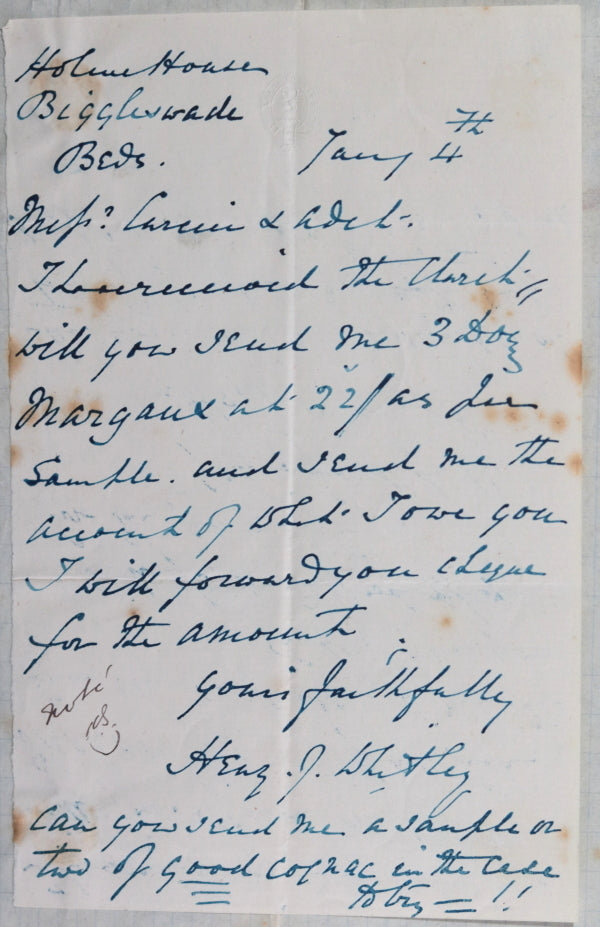 Holme House
Biggleswade
Beds.
Jany 4th
Messrs &
I have received the Claret
will you send me 3 Doz
Margaux at 22/ as per
Sample. and send me the
account of what I owe you
I will forward you cheque
for the amount.
yours faithfully
Heny. J. Whitley
noté
can you send me a sample or
two of good cognac in the case
to try !!